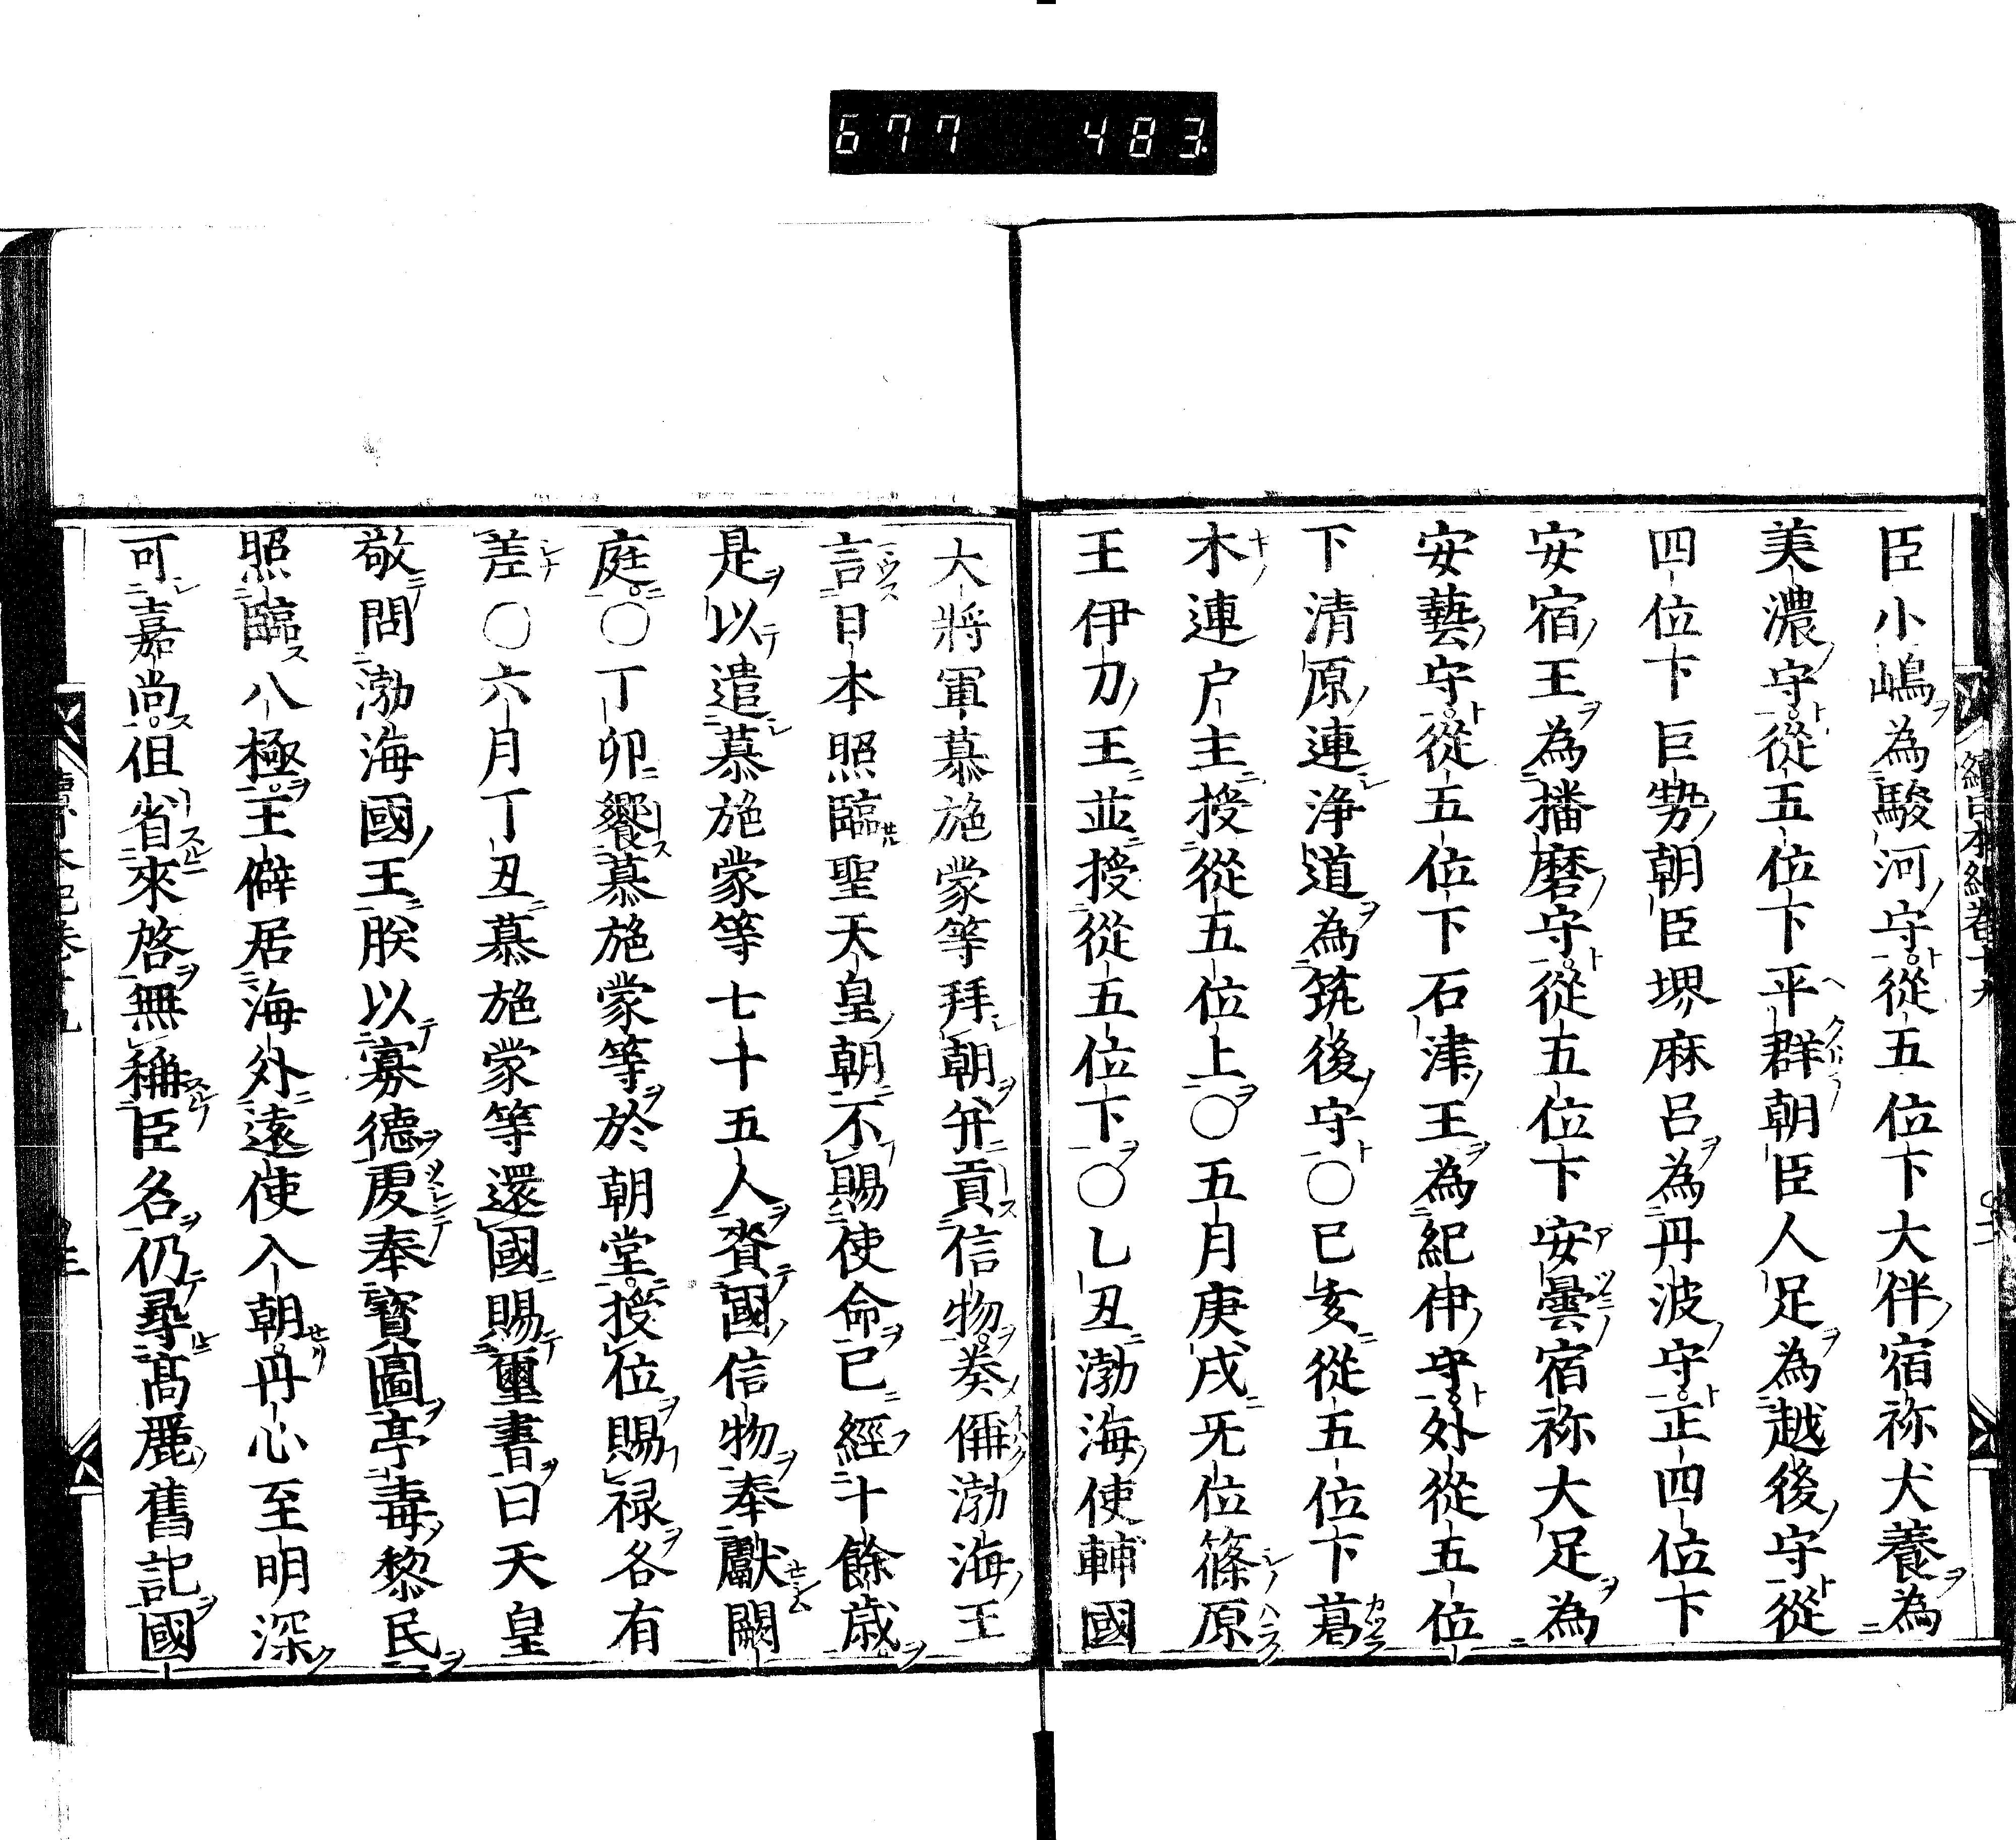 677 483.
臣小嶋為駿河守從五位下大伴宿祢犬養為
美濃守從五位下平群朝臣人足為越後守從
四位下巨勢朝臣堺麻呂為丹波守正四位下
安宿王為播磨守從五位下安曇宿祢大足為
安藝守從五位下石津王為紀伊守外從五位
下清原連浄道為筑後守○己亥從五位下葛
木連戸主授從五位上○五月庚戌无位篠原
王伊刀王並授從五位下○乙丑渤海使輔國
大將軍慕施蒙等拜朝并貢信物奏偁渤海王
言日本照臨聖天皇朝不賜使命已經十餘歳
是以遣慕施蒙等七十五人賫國信物奉獻闕
庭○丁卯饗慕施蒙等於朝堂授位賜禄各有
差○六月丁丑慕施蒙等還國賜璽書曰天皇
敬問渤海國王朕以寡德虔奉寳圖亭毒黎民
照臨八極王僻居海外遠使入朝丹心至明深
可嘉尚但省來啓無稱臣名仍尋髙麗舊記國